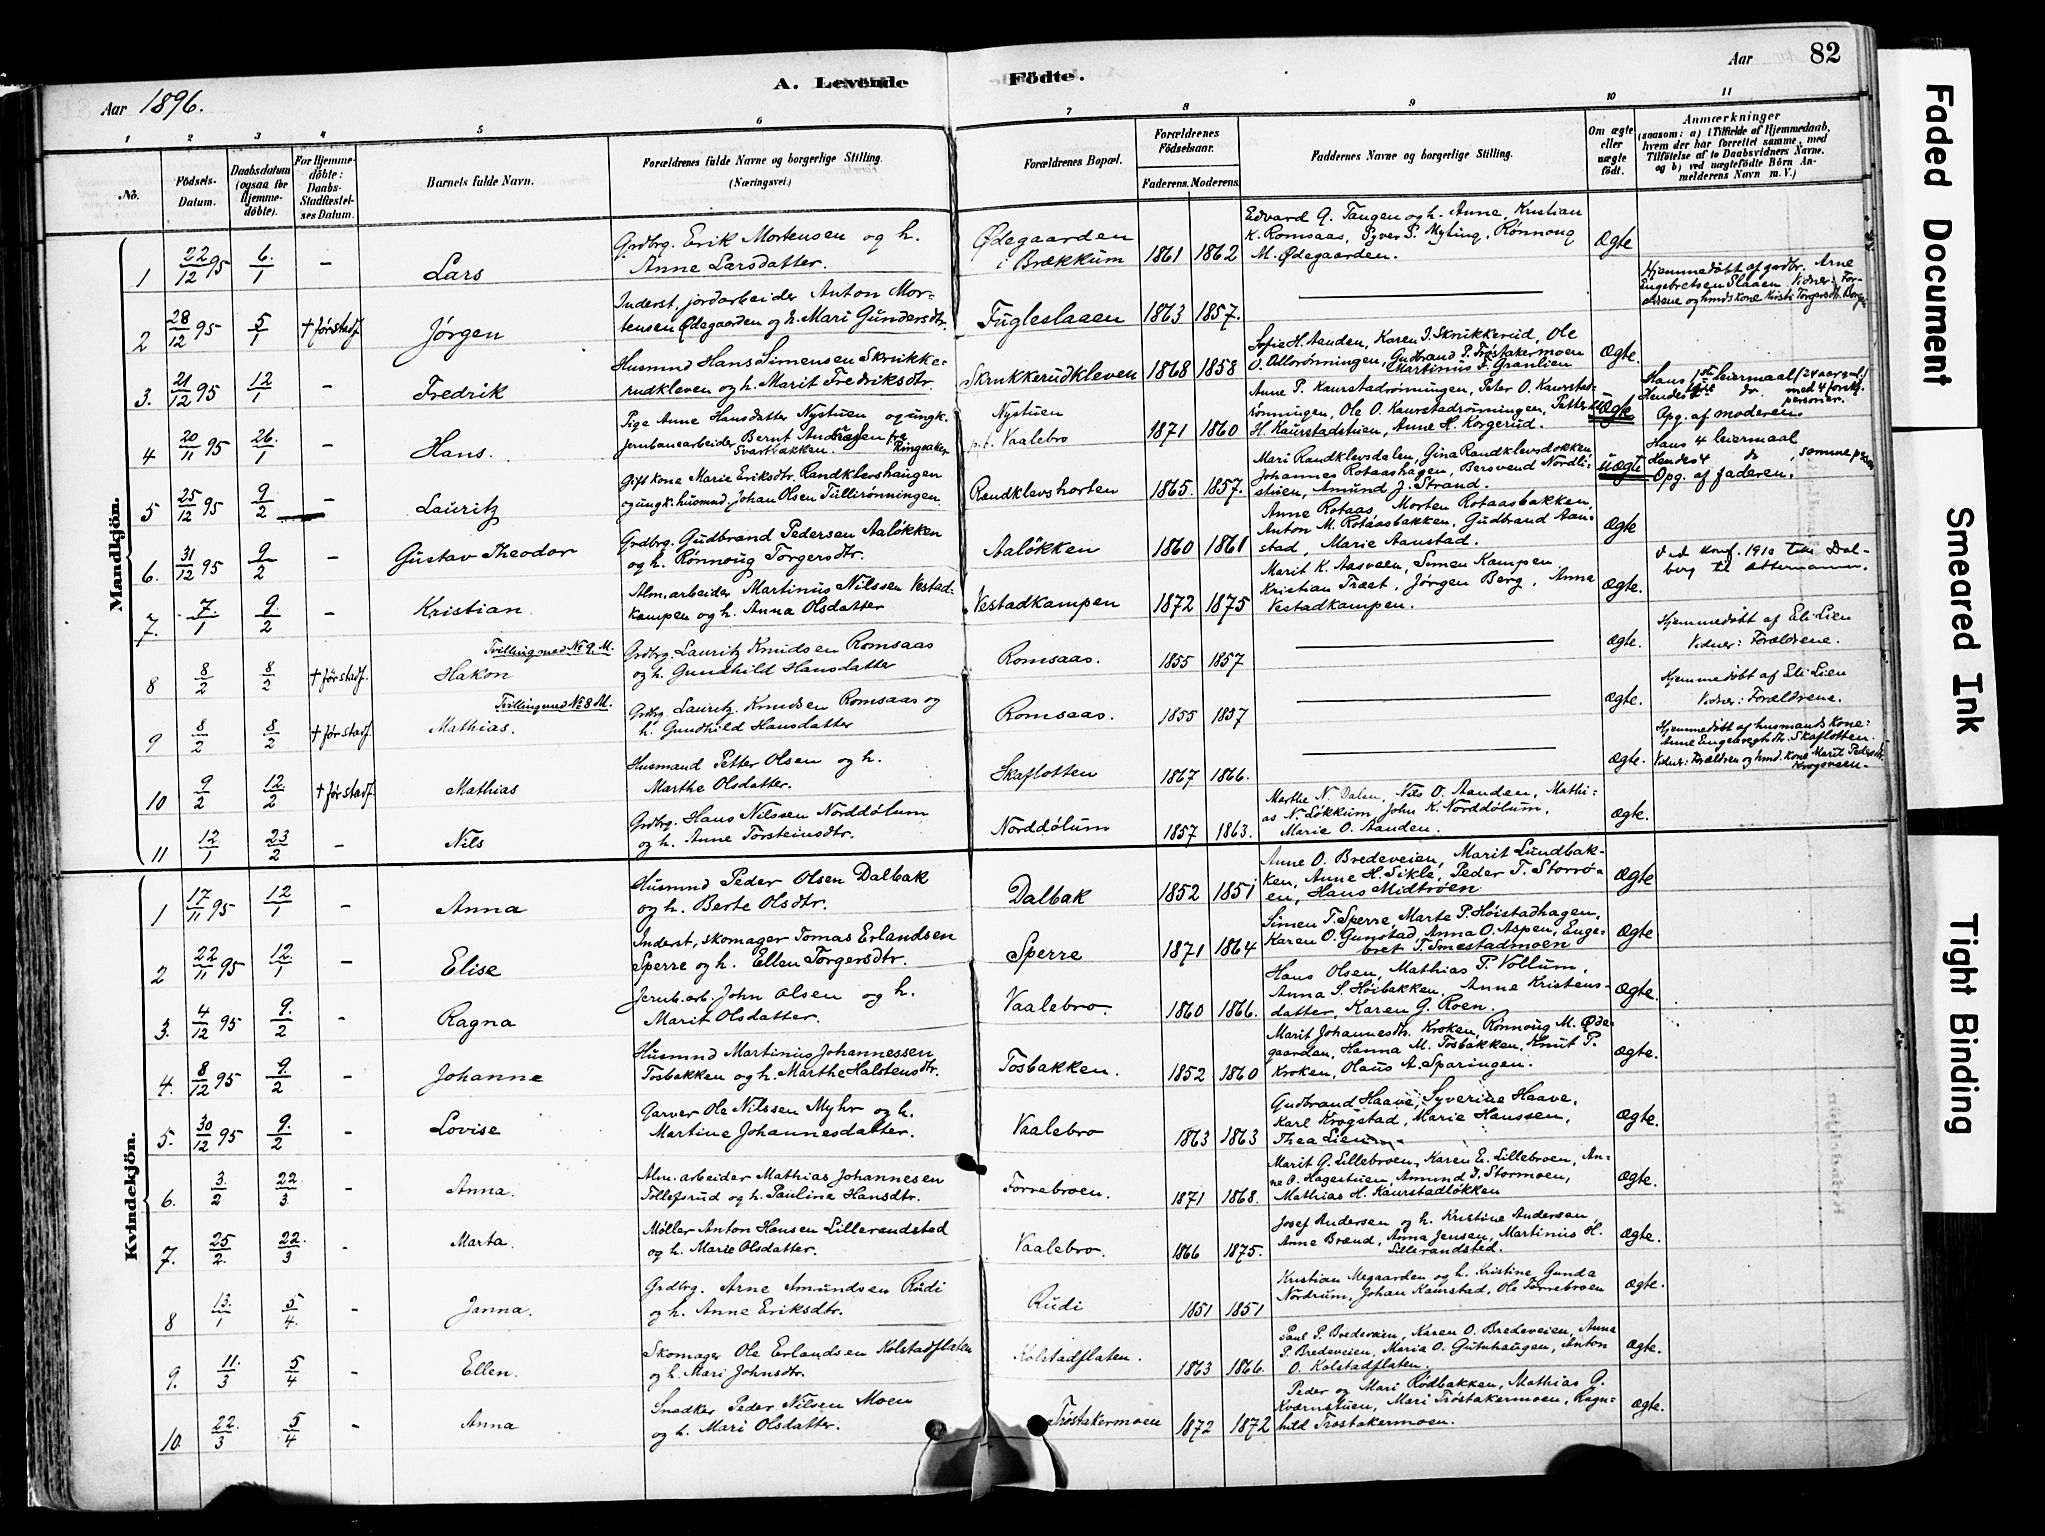 82
Aar 1896.
A. Levende Födte.
Aar
1 2 3 4 5 6 7 8 9 10 11
No.
Födsels-Datum.
Daabsdatum (ogsaa for Hjemmedöbte).
For Hjemmedöbte: Daabs-Stadfæstelses Datum.
Barnets fulde Navn.
Forældrenes fulde Navne og borgerlige Stilling.
(Næringsvei.)
Forældrenes Bopæl.
Forældrenes Födselsaar.
Faderens. Moderens.
Faddernes Navne og borgerlige Stilling.
Om ægte eller uægte födt.
Anmærkninger
(saasom: a) i Tilfælde af Hjemmedaab, hvem der har forrettet samme, med Tilföielse af to Daabsvidners Navne, og b) ved uægtefödte Börn Anmelderens Navn m. V.)
Mandkjön.
1 22/12 95 6/1 – Lars
Grdbrg. Erik Mortensen og h.
Anne Larsdatter.
Ødegaarden
i Brækkum 1861 1862
Edvard Q. Tangen og h. Anne, Kristian
K. Romsaas, Syver P. Myting, Rønnoug
M. Ødegaarden.
Ægte
2 28/12 95 5/1 + før stadf. Jørgen
Inderst, jordarbeider Anton Mor-
tensen Ødegaarden og h. Mari Gundersdtr.
Fugleslaaen 1863 1857.
Hjemmedøbt af grdbr. Arne
Engebretsen Slaaen, Vidner: For-
ældrene og hmds kone Kristi Torgersdtr.
3. 21/12 95 12/1 – Fredrik
Husmnd Hans Simensen Skrukke-
rudkleven og h. Marit Fredriksdtr.
Skrukkerudkleven 1868 1858
Sofie H. Aanden, Karen J. Skrukkerud, Ole
O. Odlrønningen, Gudbrand P. Trøstakermoen
Martinus F. Granlien
Ægte.
4 20/11 95 26/1 – Hans.
Pige Anne Hansdatter Nystuen og ungk.
Jernbanearbeider Bernt Andersen fra
Svartbakken. Ringsaker
Nystuen
p.t. Vaalebro 1871 1860
Anne P. Kaurstadrønningen, Peter O. Kaurstad-
rønningen, Ole O. Kaurstadrønningen, Petter
H. Kaurstadstuen, Anne H. Korgerud.
uægte
Hans 1ste leiermaal (24 aar gml)
Hendes do. med 4 forskj. personer.
Opg. af moderen.
5 25/12 95 9/2 – Lauritz
Gift kone Marie Eriksdtr. Randklevshaugen
og ungk. husmnd Johan Olsen Tullirønningen.
Randklevshorten 1865. 1857.
Mari Randklevsdalen, Gina Randklevsdokken
Johannes Rotaashagen, Bersvend Nordli-
stuen, Amund J. Strand.
uægte
Hans 4 leiermaal
Hendes 4 do, samme person
Opg. af faderen.
6. 31/12 95 9/2 – Gustav Theodor
Grdbrg. Gudbrand Pedersen Aaløkken
og h. Rønnoug Torgersdtr.
Aaløkken 1860 1861
Anne Rotaas, Morten Rotaasbakken,
Anton M. Rotaasbakken, Gudbrand Aan-
stad, Marie Aanstad.
Ægte
Ved konf. 1910
7. 7/1 9/2 – Kristian.
Alm. arbeider Martinus Nilssen Vestad-
kampen og h. Anna Olsdatter
Vestadkampen 1872 1875
Marit K. Aasveen, Simen Kampen,
Kristian Traet, Jørgen Berg, Anna
Vestadkampen.
Ægte.
8 8/2 8/2 + før stadf. Tvilling med No 9. M.
Hakon
Grdbrg. Lauritz Knudsen Romsaas
og h. Gundhild Hansdatter
Romsaas. 1855 1857
Ægte.
Hjemmedøbt af Eli Lien
Vidner: Forældrene.
9 8/2 8/2 + før stadf. Tvilling med No 8 M.
Mathias.
Grdbrg. Lauritz Knudsen Romsaas og
h. Gundhild Hansdatter
Romsaas. 1855 1857
Ægte.
Hjemmedøbt af Eli Lien
Vidner: Forældrene.
10 9/2 12/2 + før stadf. Mathias
Husmand Petter Olsen og h.
Marthe Olsdatter.
Skaflotten 1867 1866.
Ægte.
Hjemmedøbt af husmands kone:
Anne Engebregtsdtr. Skaflotten.
Vidner: Forældren og hmd. kone Marit Pedersdtr.
Krogsveen.
11 12/1 23/2 – Nils
Grdbrg. Hans Nilssen Norddølum
og h. Anne Torsteinsdtr.
Norddølum 1857 1863.
Marthe N. Dalen, Nils O. Aanden, Mathi-
as N. Løkkum, John K. Norddølum,
Marie O. Aanden.
Ægte.
Kvindekjön.
1 17/11 95 12/1 – Anna
Husmnd Peder Olsen Dalbak
og h. Berte Olsdtr.
Dalbak 1852 1851
Anne O. Bredeveien, Marit Lundbak-
ken, Anne H. Sikle, Peder T. Storrø-
en, Hans Midtrøen
Ægte
2 22/11 95 12/1 – Elise
Inderst, skomager Tomas Erlandsen
Sperre og h. Ellen Torgersdtr.
Sperre 1871 1864
Simen T. Sperre, Marte P. Høistadhagen,
Karen O. Gunstad, Anna O. Aspen, Enge-
bret T. Smestadmoen
Ægte
3. 4/12 95 9/2 – Ragna
Jernb. arb. John Olsen og h.
Marit Olsdatter.
Vaalebro. 1860 1866.
Hans Olsen, Mathias P. Vollum,
Anna S. Høibakken, Anne Kristens-
datter, Karen G. Roen.
Ægte.
4. 8/12 95 9/2 – Johanne
Husmnd Martinus Johannessen
Tosbakken og h. Marthe Halstensdtr.
Tosbakken. 1852 1860
Marit Johannesdtr. Kroken, Rønnoug M. Øde-
gaarden, Hanna M. Tosbakken, Knut P.
Kroken, Olaus A. Sparingen.
Ægte.
5. 30/12 95 9/2 – Lovise
Garver Ole Nilssen Myhr og h.
Martine Johannesdatter.
Vaalebro 1863 1863
Gudbrand Haave, Syverine Haave,
Karl Krogstad, Marie Hanssen,
Thea Lien
Ægte.
6. 3/2 22/3 – Anna.
Alm. arbeider Mathias Johannesen
Tollefsrud og h. Pauline Hansdtr.
Forrebroen. 1871 1868.
Marit G. Lillebroen, Karen E. Lillebroen, An-
ne O. Hagestuen, Amund J. Stormoen,
Mathias H. Kaurstadløkken
Ægte.
7. 25/2 22/3 – Marta.
Møller Anton Hansen Lillerandstad
og h. Marie Olsdatter.
Vaalebro. 1866 1875.
Josef Andersen og h. Kristine Andersen,
Anne Brænd, Anna Jensen, Martinus H.
Lillerandsted.
Ægte.
8 13/1 5/4 – Janna.
Grdbrg. Arne Amundsen Rudi
og h. Anne Eriksdtr.
Rudi 1851 1851
Kristian Megaarden og h. Kristine, Gunda
Nordrum, Johan Kaurstad, Ole Forrebroen
Ægte.
9. 11/3 5/4 – Ellen.
Skomager Ole Erlandsen Kolstadflaten
og h. Mari Johnsdtr.
Kolstadflaten. 1863 1866.
Paul P. Bredeveien, Karen O. Bredeveien, Anna
P. Bredeveien, Maria O. Gutuhaugen, Anton
O. Kolstadflaten.
Ægte.
10. 22/3 5/4 – Anna
Snedker Peder Nilsen Moen
og h. Mari Olsdatter.
Trøstakermoen 1872 1872
Peder og Mari Rødbakken, Mathias G.
Kværnstuen, Mari Trøstakermoen, Ragn-
hild Trøstakermoen.
Ægte.
Faded Document
Smeared Ink
Tight Binding